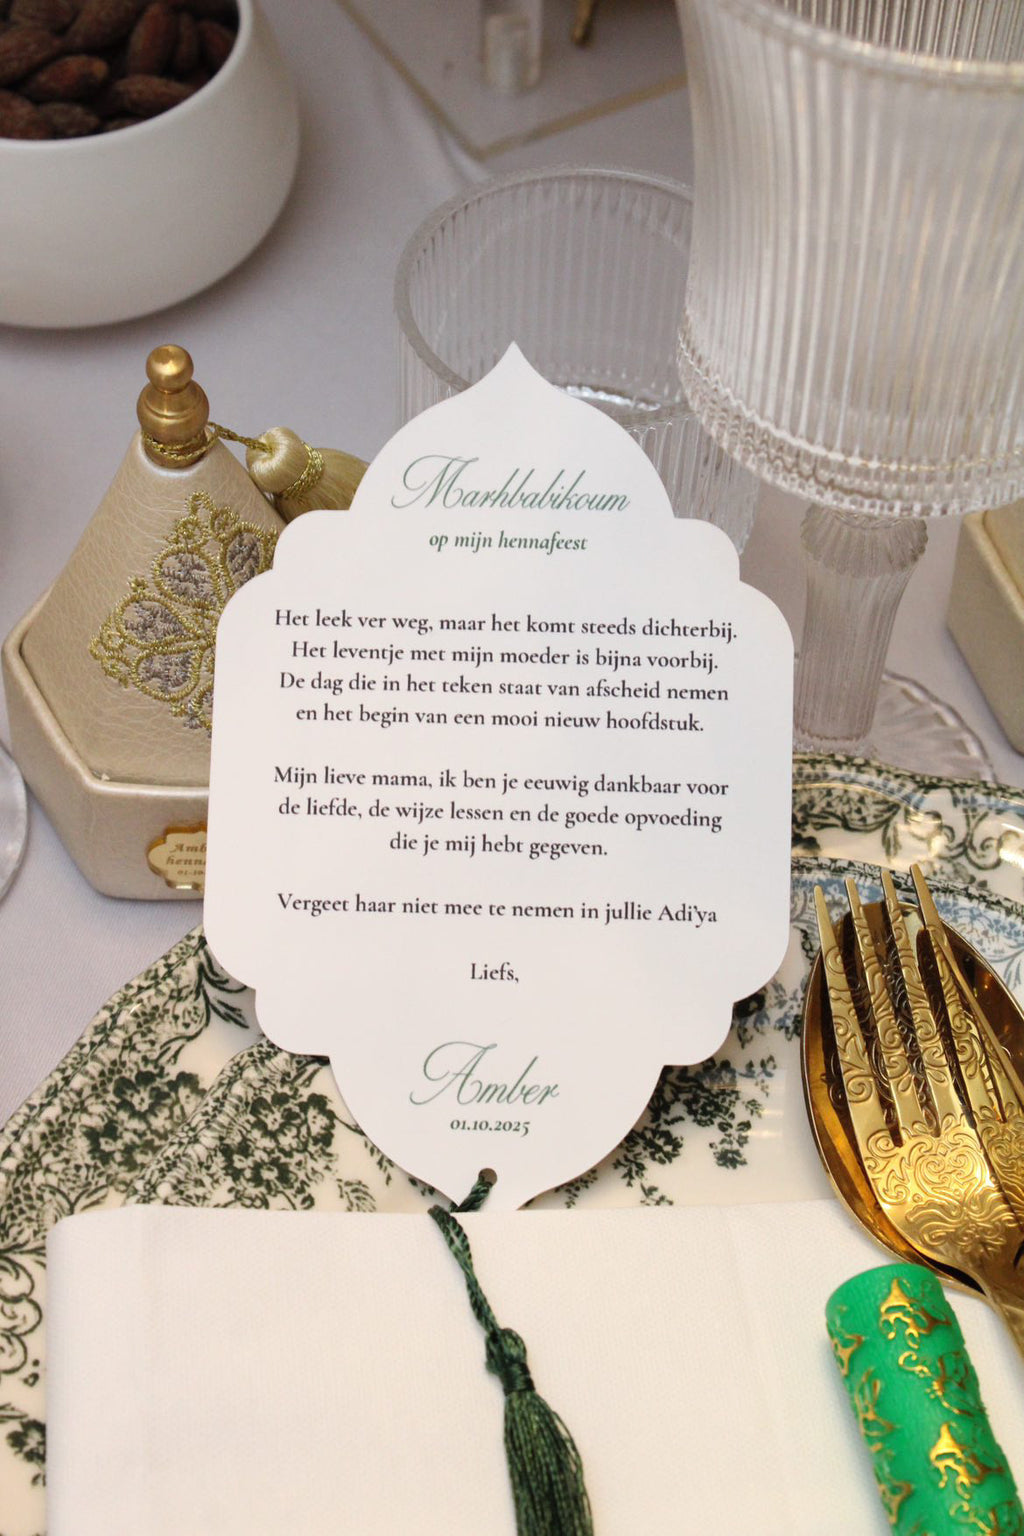 Marhbabikoum
op mijn hennafeest
Het leek ver weg, maar het komt steeds dichterbij.
Het leventje met mijn moeder is bijna voorbij.
De dag die in het teken staat van afscheid nemen
en het begin van een mooi nieuw hoofdstuk.
Mijn lieve mama, ik ben je eeuwig dankbaar voor
de liefde, de wijze lessen en de goede opvoeding
die je mij hebt gegeven.
Vergeet haar niet mee te nemen in jullie Adi'ya
Liefs,
Amber
01.10.2025